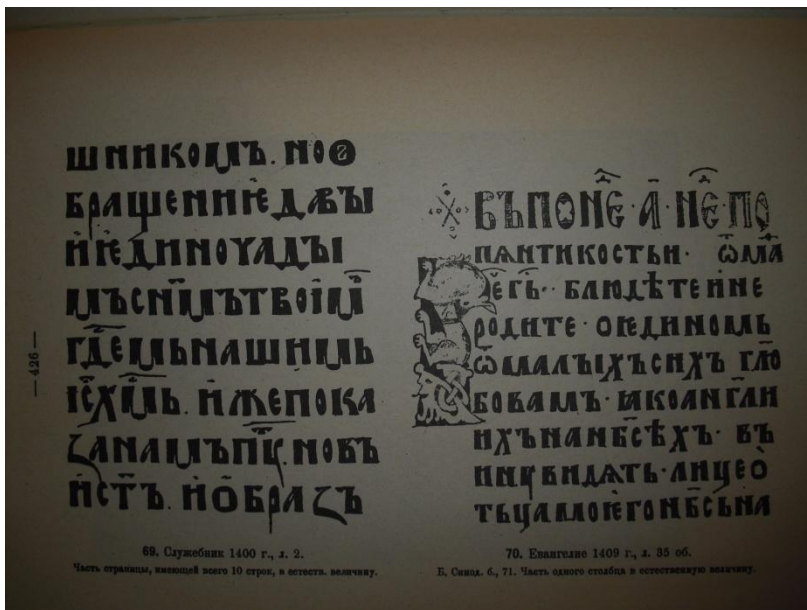 шникомъ. ноѻ
бращениѥ дѣвы
и ѥдиночады
мъ снмъ твоіⷨ
гдемь нашимь
іс҃хмь. и же пока
ꙁа намъ пꙋ. новъ
и ст҃ъ. и образъ
— 426 —
69. Служебник 1400 г., л. 2.
Часть страницы, имеющей всего 10 строк, в естеств. величину.
въ по не҃ · а҃ · не҃ по
пѧнтикостьи · ѿ ма
ег҃ь · блюдѣте и не
родите · о ѥдиномь
ѿ малыхъ сихъ гл҃ю
бо вамъ · ꙗко анг҃ли
ихъ на нб҃сѣхъ · въ
ину видѧть · лице о
тьца моѥго нб҃сьна
70. Евангелие 1409 г., л. 35 об.
Б. Синод. б., 71. Часть одного столбца в естественную величину.